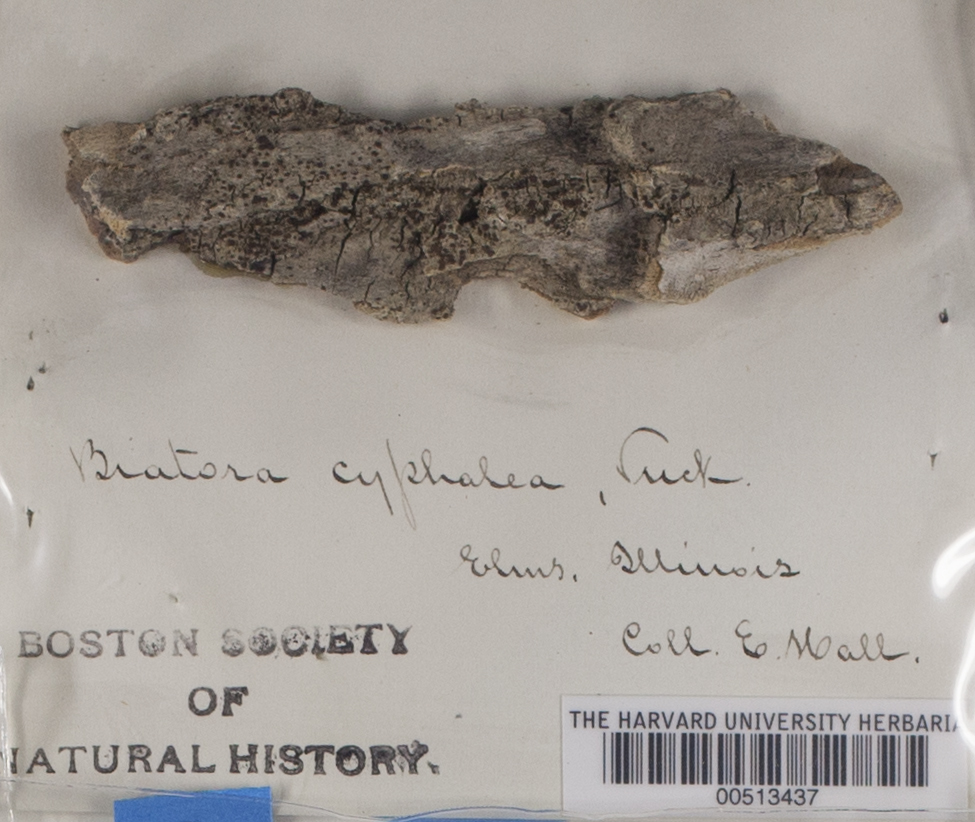 Biatora cyphalea, Tuck.
Elms. Illinois
Coll. E. Hall.
BOSTON SOCIETY
OF
NATURAL HISTORY.
THE HARVARD UNIVERSITY HERBARIA
00513437